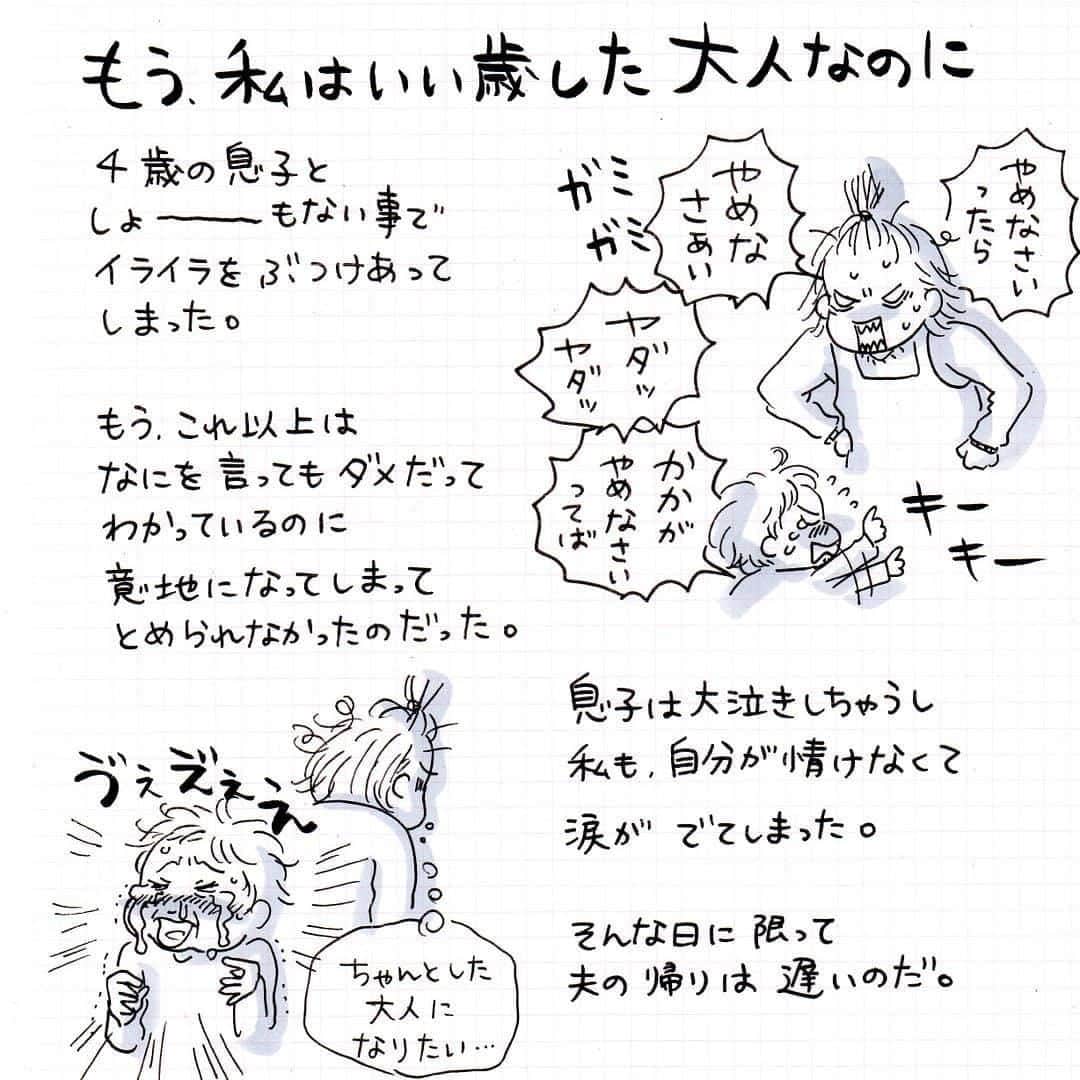 もう、私はいい歳した大人なのに
4歳の息子と
しょーーーもない事で
イライラをぶつけあって
しまった。
やめなさい
ったら
やめな
さぁい
ガミ
ガミ
ヤダッ
ヤダッ
かかが
やめなさい
ってば
キー
キー
もう、これ以上は
なにを言ってもダメだって
わかっているのに
意地になってしまって
とめられなかったのだった。
息子は大泣きしちゃうし
私も、自分が情けなくて
涙がでてしまった。
ゔぇぇぇん
ちゃんとした
大人に
なりたい…
そんな日に限って
夫の帰りは遅いのだ。